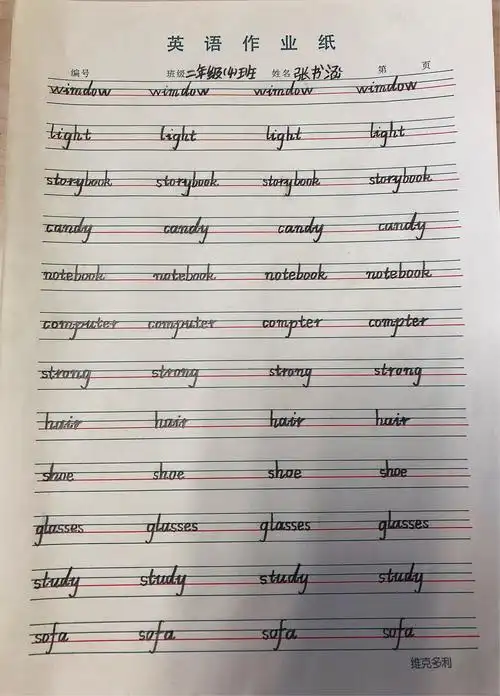 英语作业纸
编号 班级 二年级(4)班 姓名 张书涵 第 页
window window window window
light light light light
storybook storybook storybook storybook
candy candy candy candy
notebook notebook notebook notebook
computer computer compter compter
strong strong strong strong
hair hair hair hair
shoe shoe shoe shoe
glasses glasses glasses glasses
study study study study
sofa sofa sofa sofa
维克多利